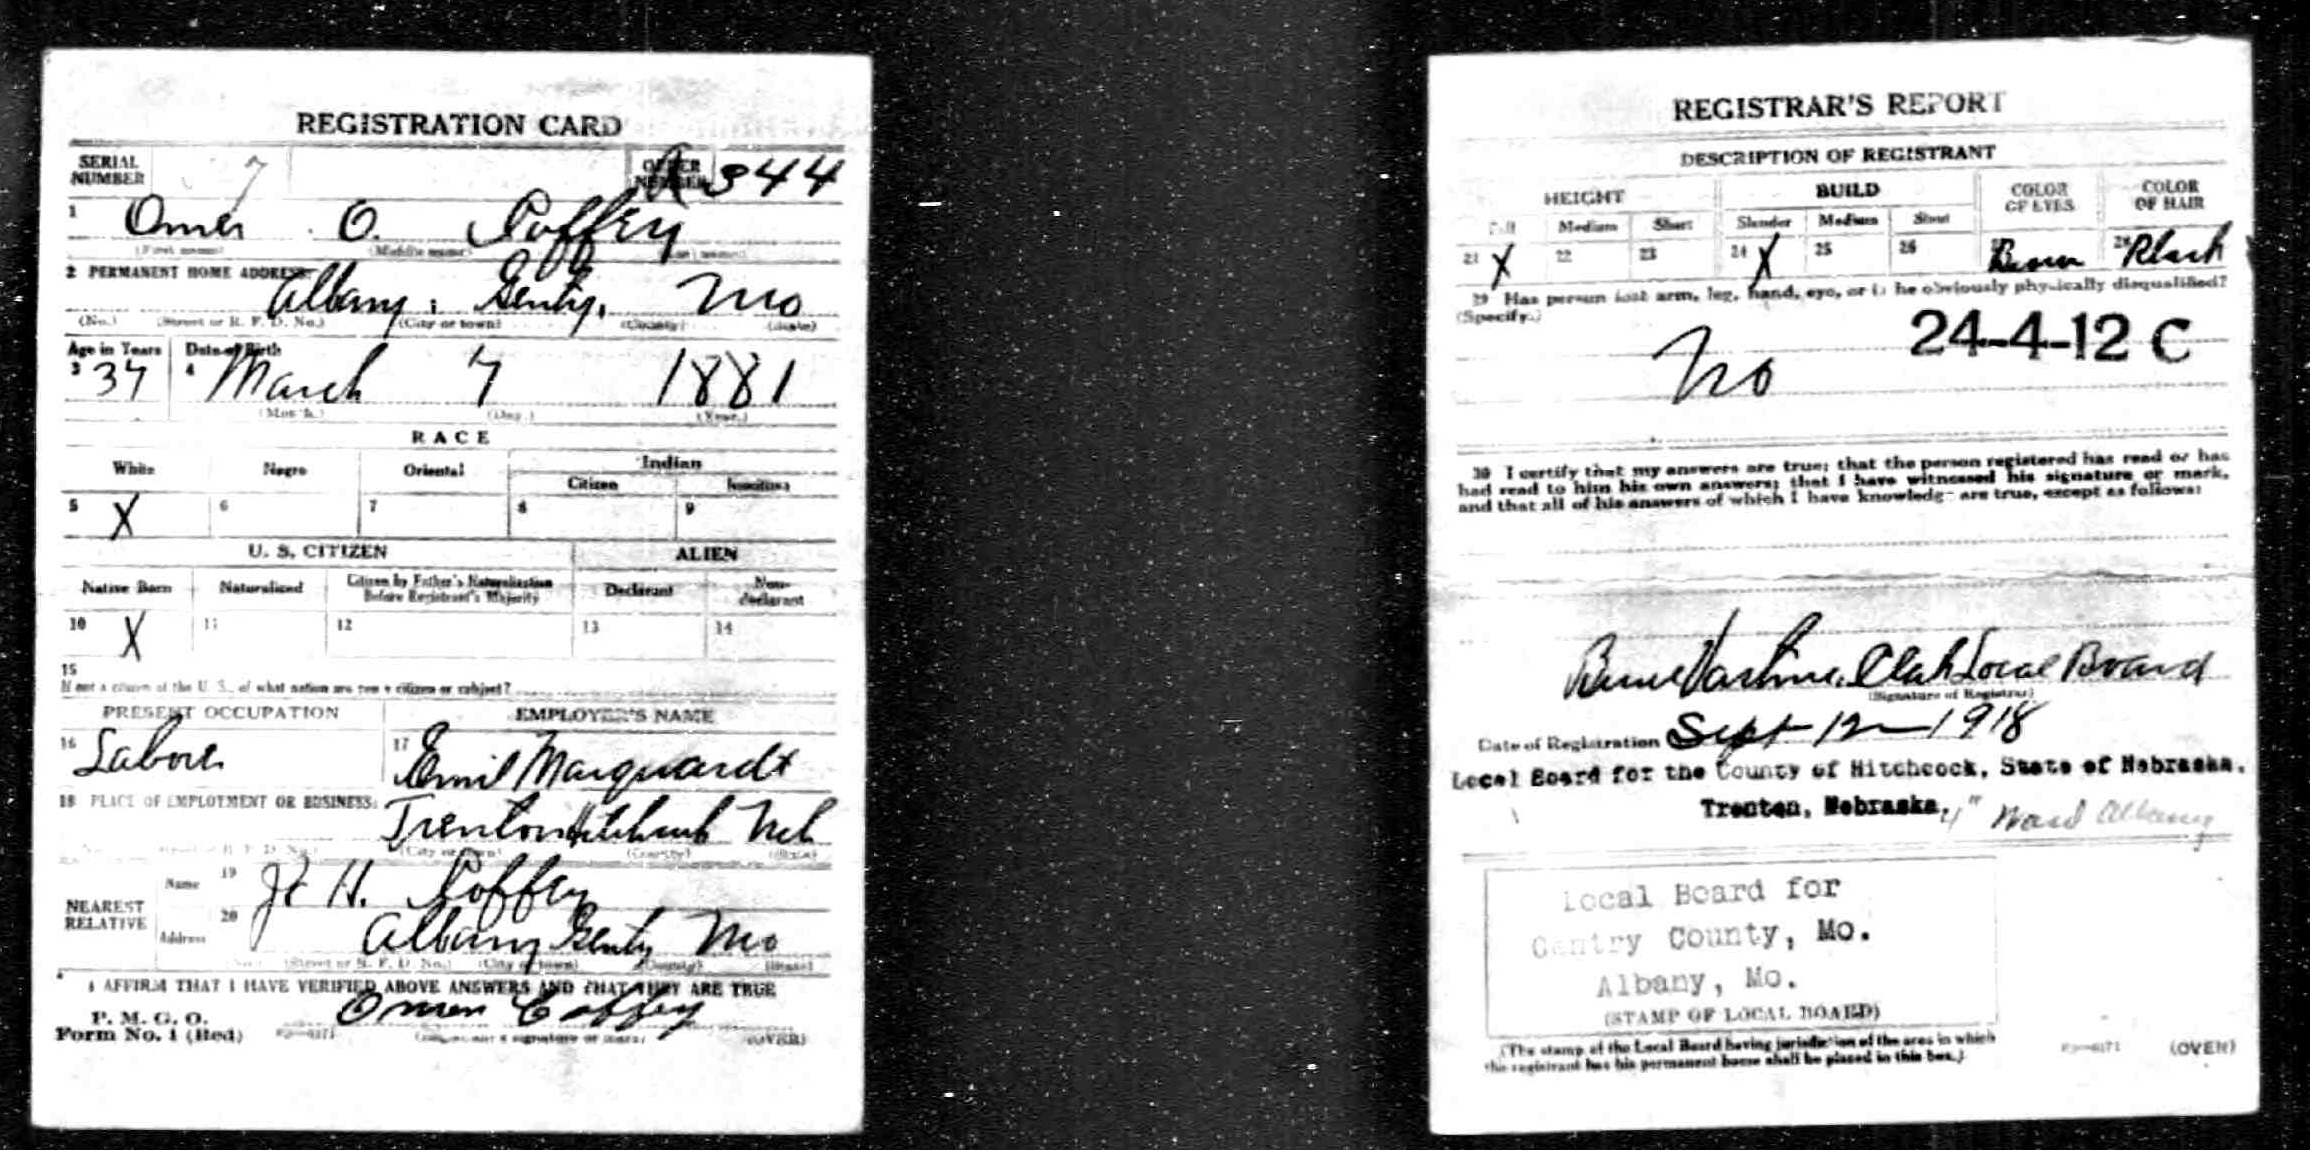 REGISTRATION CARD
SERIAL NUMBER 7 ORDER NUMBER A344
1 Omer O. Coffey
(First name) (Middle name) (Last name)
2 PERMANENT HOME ADDRESS:
Albany, Gentry, Mo
(No.) (Street or R. F. D. No.) (City or town) (County) (State)
Age in Years Date of Birth
3 37 4 March 7 1881
(Month.) (Day.) (Year.)
RACE
White Negro Oriental Indian
Citizen Noncitizen
5 X 6 7 8 9
U. S. CITIZEN ALIEN
Native Born Naturalized Citizen by Father's Naturalization Before Registrant's Majority Declarant Non-declarant
10 X 11 12 13 14
15
If not a citizen of the U. S., of what nation are you a citizen or subject?
PRESENT OCCUPATION EMPLOYER'S NAME
16 Labore 17 Emil Marquardt
18 PLACE OF EMPLOYMENT OR BUSINESS:
Trenton Hitchcock Neb
(No.) (Street or R. F. D. No.) (City or town) (County) (State)
NEAREST RELATIVE Name 19 H. Coffey
Address 20 Albany Gentry Mo
(No.) (Street or R. F. D. No.) (City or town) (County) (State)
I AFFIRM THAT I HAVE VERIFIED ABOVE ANSWERS AND THAT THEY ARE TRUE
P. M. G. O.
Form No. 1 (Red) Omer Coffey
(Registrant's signature or mark) (OVER)
REGISTRAR'S REPORT
DESCRIPTION OF REGISTRANT
HEIGHT BUILD COLOR OF EYES COLOR OF HAIR
Tall Medium Short Slender Medium Stout
21 X 22 23 24 X 25 26 27 Brown 28 Black
29 Has person lost arm, leg, hand, eye, or is he obviously physically disqualified?
(Specify.)
No 24-4-12 C
30 I certify that my answers are true; that the person registered has read or has
had read to him his own answers; that I have witnessed his signature or mark,
and that all of his answers of which I have knowledge are true, except as follows:
Vastine, Clerk Local Board
(Signature of Registrar)
Date of Registration Sept 12 1918
Local Board for the County of Hitchcock, State of Nebraska.
Trenton, Nebraska. Ward Albany
Local Board for
Gentry County, Mo.
Albany, Mo.
(STAMP OF LOCAL BOARD)
(The stamp of the Local Board having jurisdiction of the area in which
the registrant has his permanent home shall be placed in this box.)
(OVER)